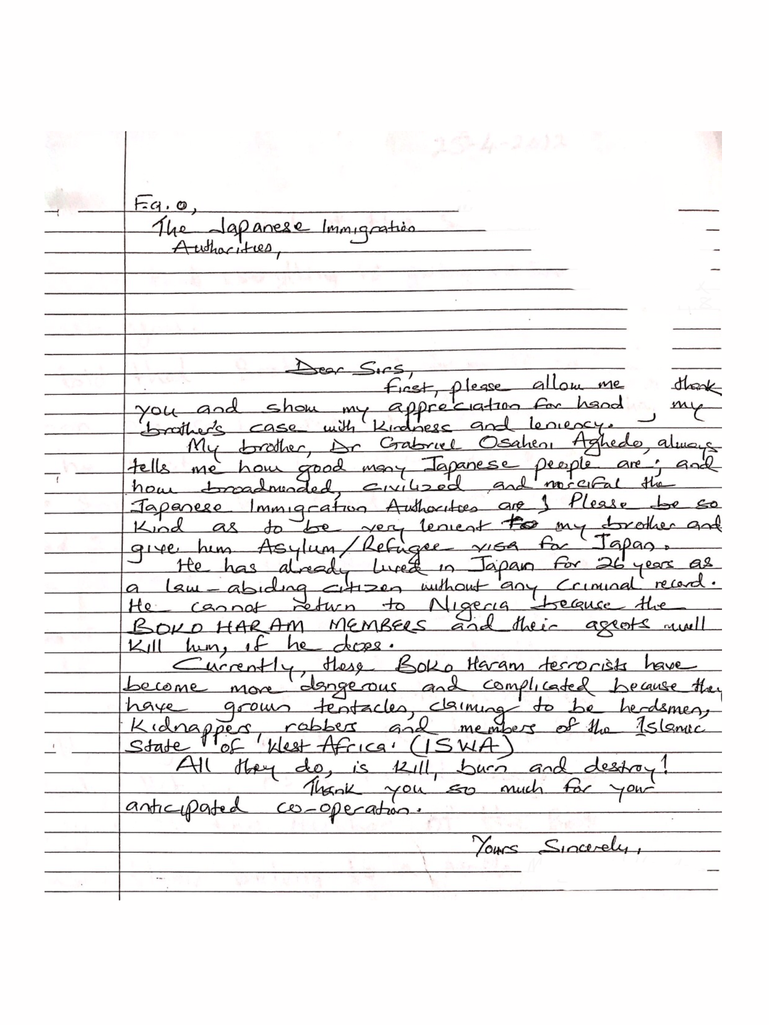 F.a.o,
The Japanese Immigration
Authorities,
Dear Sirs,
First, please allow me thank
you and show my appreciation for hand my
brother's case with kindness and leniency.
My brother, Dr Gabriel Osaheni Aghedo, always
tells me how good many Japanese people are; and
how broadminded, civilized and merciful the
Japanese Immigration Authorities are! Please be so
kind as to be very lenient to my brother and
give him Asylum/Refugee visa for Japan.
He has already lived in Japan for 26 years as
a law-abiding citizen without any criminal record.
He cannot return to Nigeria because the
BOKO HARAM MEMBERS and their agents will
kill him, if he does.
Currently, these Boko Haram terrorists have
become more dangerous and complicated because they
have grown tentacles, claiming to be herdsmen,
kidnappers, robbers and members of the Islamic
State of West Africa. (ISWA)
All they do, is kill, burn and destroy!
Thank you so much for your
anticipated co-operation.
Yours Sincerely,